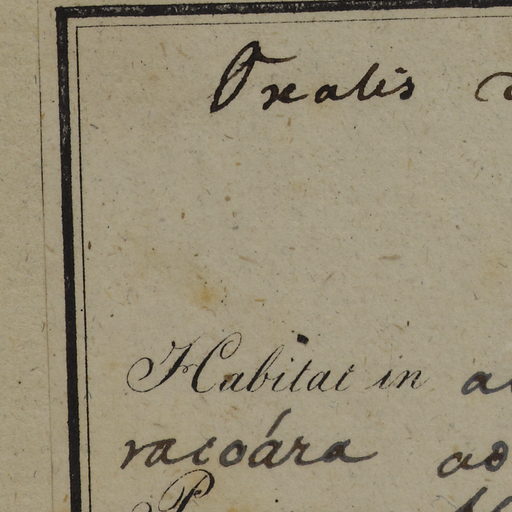 Oxalis
Habitat in
racoára ad